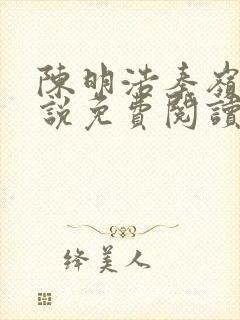 陳明浩秦嶺
說免費閱讀
绛美人